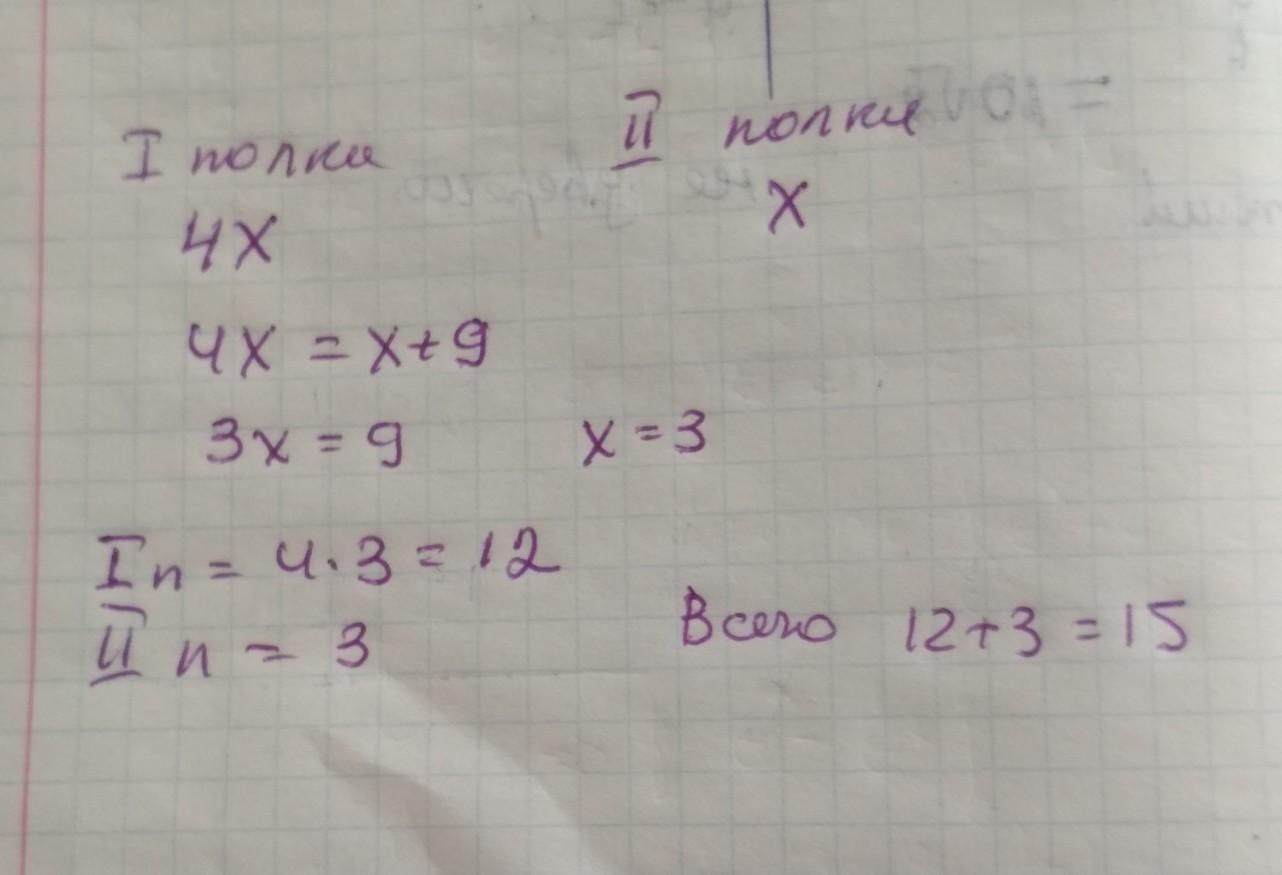 I полка II полка
4х х
4х = х+9
3х = 9 х = 3
I п = 4·3 = 12
II п = 3
Всего 12+3 = 15